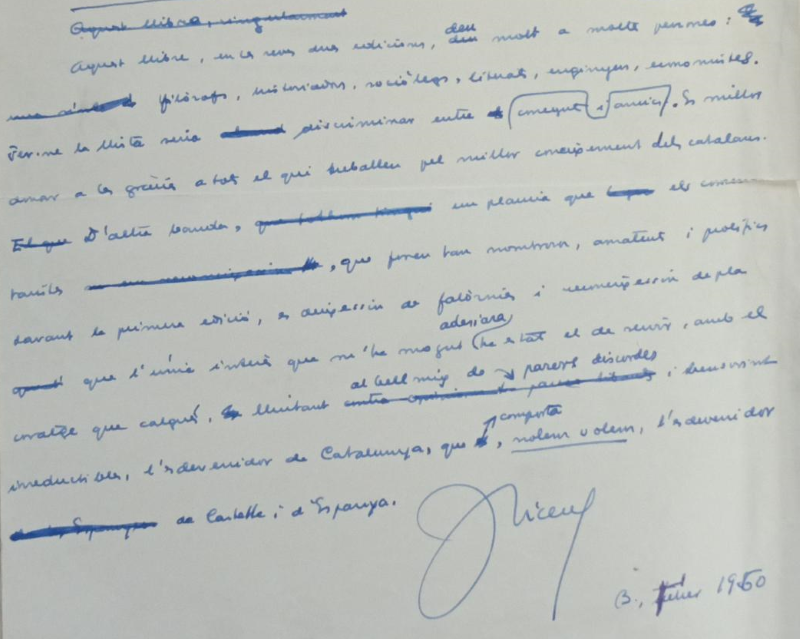 Aquest llibre, singularment
Aquest llibre, en les seves dues edicions, deu deu molt a moltes persones:
filòsofs, historiadors, sociòlegs, literats, enginyers, economistes.
Fer-ne la llista seria discriminar entre coneguts i amics. És millor
donar les gràcies a tot el qui treballen pel millor coneixement dels catalans.
El que D'altra banda, em plauria que els comen-
taristes, que foren tan nombrosos, amatents i prolífics
davant la primera edició, es deixessin de falòrnies i reconeixessin de pla
que l'únic interès que m'ha mogut adesiara ha estat el de servir, amb el
coratge que calgués, lluitant al bell mig de parers discordes i
irreductibles, l'esdevenidor de Catalunya, que comporta, nolem volem, l'esdevenidor
de Castella i d'Espanya.
JVicens
B., 1960